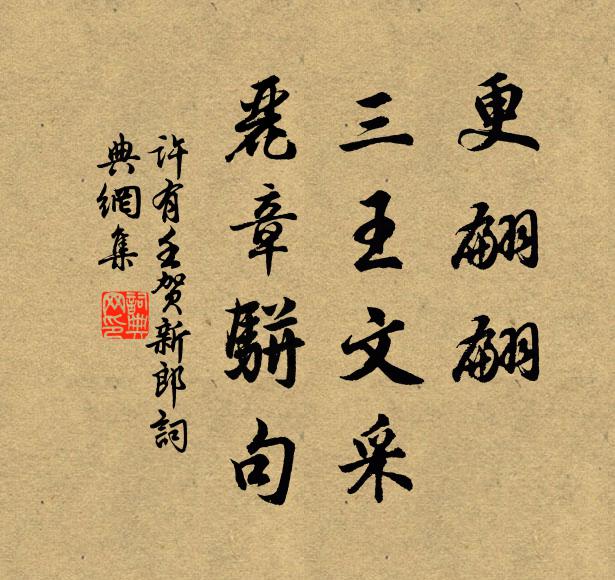 更翩翩
三王文采
麗章駢句
許有壬賀新郎詞
典網集
詞典
网印